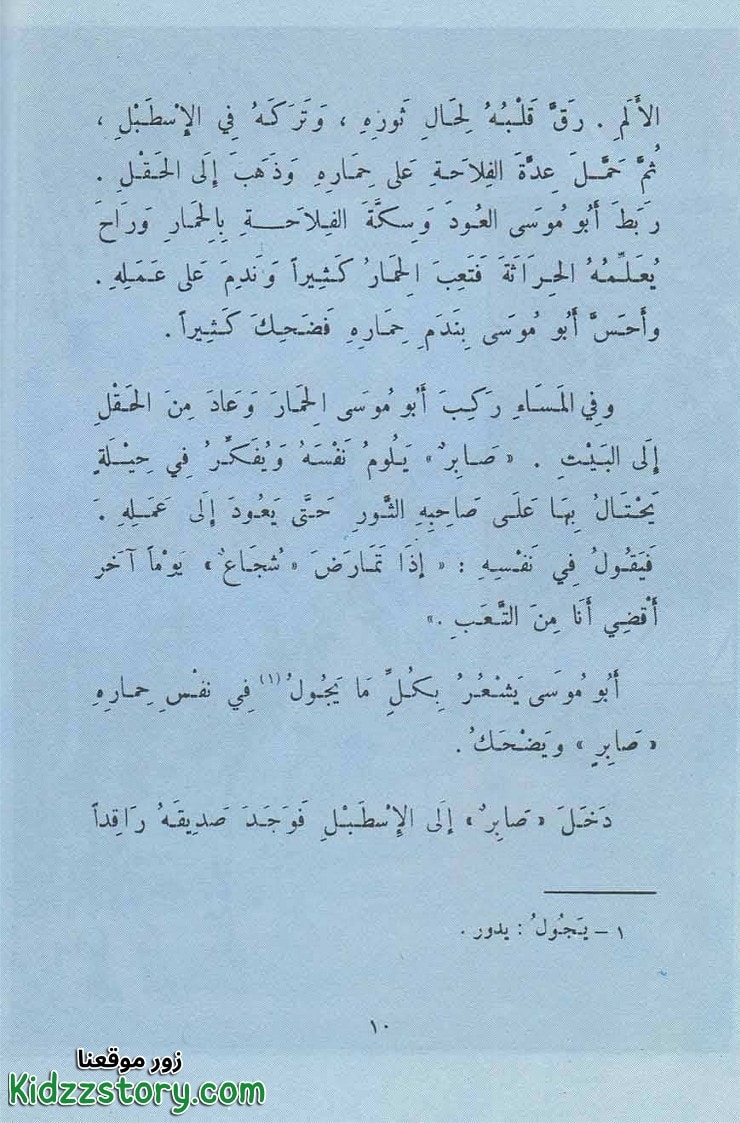 الأَلَمِ . رَقَّ قَلْبُهُ لِحَالِ ثَوْرِهِ ، وَتَرَكَهُ فِي الإِسْطَبْلِ ،
ثُمَّ حَمَّلَ عِدَّةَ الفِلاَحَةِ عَلَى حِمَارِهِ وَذَهَبَ إِلَى الحَقْلِ .
رَبَطَ أَبُو مُوسَى العُودَ وَسِكَّةَ الفِلاَحَةِ بِالحِمَارِ وَرَاحَ
يُعَلِّمُهُ الحِرَاثَةَ فَتَعِبَ الحِمَارُ كَثِيراً وَنَدِمَ عَلَى عَمَلِهِ .
وأَحَسَّ أَبُو مُوسَى بِنَدَمِ حِمَارِهِ فَضَحِكَ كَثِيراً .
وفِي المَسَاءِ رَكِبَ أَبُو مُوسَى الحِمَارَ وَعَادَ مِنَ الحَقْلِ
إِلَى البَيْتِ . « صَابِرٌ » يَلُومُ نَفْسَهُ وَيُفَكِّرُ فِي حِيْلَةٍ
يَحْتَالُ بِهَا عَلَى صَاحِبِهِ الثَّورِ حَتَّى يَعُودَ إِلَى عَمَلِهِ .
فَيَقُولُ فِي نَفْسِهِ : « إِذَا تَمَارَضَ « شُجَاعٌ » يَوْماً آخَرَ
أَقْضِي أَنَا مِنَ التَّعَبِ .»
أَبُو مُوسَى يَشْعُرُ بِكُلِّ مَا يَجُولُ (١) فِي نَفْسِ حِمارِهِ
« صَابِرٍ » ويَضْحَكُ .
دَخَلَ « صَابِرٌ » إِلَى الإِسْطَبْلِ فَوَجَدَ صَدِيقَهُ رَاقِداً
١ – يَجُولُ : يدور .
١٠
زور موقعنا
Kidzzstory.com